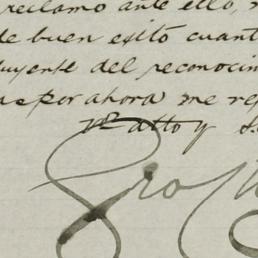 reclamo ante ello,
de buen esito cuant
uyente del reconocim
as por ahora me re
atto y S.